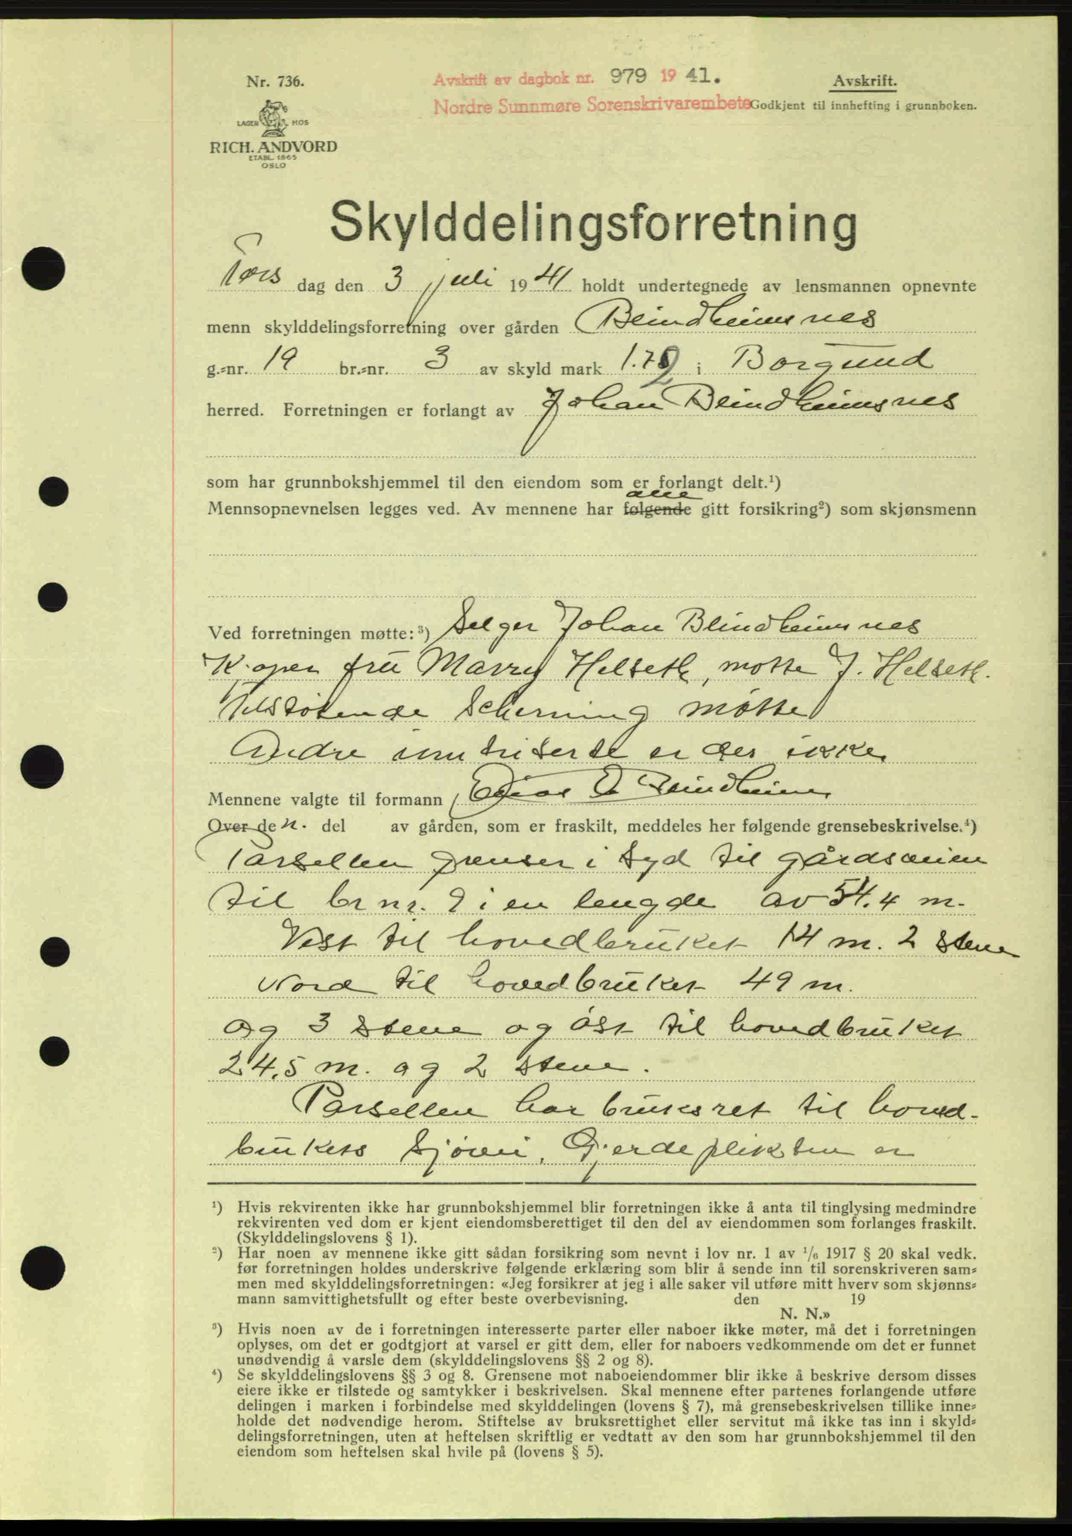 Nr. 736.
LAGER MOS
RICH. ANDVORD
ETABL. 1865
OSLO
Avskrift av dagbok nr. 979 1941.
Nordre Sunnmøre Sorenskrivarembete
Avskrift.
Godkjent til innhefting i grunnboken.
Skylddelingsforretning
Tors dag den 3 juli 1941 holdt undertegnede av lensmannen opnevnte
menn skylddelingsforretning over gården Blindheimsnes
g.-nr. 19 br.-nr. 3 av skyld mark 1.72 i Borgund
herred. Forretningen er forlangt av Johan Blindheimsnes
som har grunnbokshjemmel til den eiendom som er forlangt delt.¹)
alle
Mennsopnevnelsen legges ved. Av mennene har følgende gitt forsikring²) som skjønsmenn
Ved forretningen møtte:³) Selger Johan Blindheimsnes
Kjøper fru Marry Helseth, møtte J. Helseth.
Tilstøtende Scherning møtte
Andre inntriserte er der ikke
Mennene valgte til formann Elias O Blindheim
Over den. del av gården, som er fraskilt, meddeles her følgende grensebeskrivelse.⁴)
Parsellen grenser i Syd til gårdsveien
til br nr. 9 i en lengde av 54.4 m.
Vest til hovedbruket 14 m. 2 stene
Nord til hovedbruket 49 m.
og 3 stene og øst til hovedbruket
24,5 m. og 2 stene.
Parsellen har bruksret til hoved-
brukets sjøvei. Gjerdeplikten er
¹) Hvis rekvirenten ikke har grunnbokshjemmel blir forretningen ikke å anta til tinglysing medmindre
rekvirenten ved dom er kjent eiendomsberettiget til den del av eiendommen som forlanges fraskilt.
(Skylddelingslovens § 1).
²) Har noen av mennene ikke gitt sådan forsikring som nevnt i lov nr. 1 av 1/6 1917 § 20 skal vedk.
før forretningen holdes underskrive følgende erklæring som blir å sende inn til sorenskriveren sam-
men med skylddelingsforretningen: «Jeg forsikrer at jeg i alle saker vil utføre mitt hverv som skjønns-
mann samvittighetsfullt og efter beste overbevisning. den 19
N. N.»
³) Hvis noen av de i forretningen interesserte parter eller naboer ikke møter, må det i forretningen
oplyses, om det er godtgjort at varsel er gitt dem, eller for naboers vedkommende om det er funnet
unødvendig å varsle dem (skylddelingslovens §§ 2 og 8).
⁴) Se skylddelingslovens §§ 3 og 8. Grensene mot naboeiendommer blir ikke å beskrive dersom disses
eiere ikke er tilstede og samtykker i beskrivelsen. Skal mennene efter partenes forlangende utføre
delingen i marken i forbindelse med skylddelingen (lovens § 7), må grensebeskrivelsen tillike inne-
holde det nødvendige herom. Stiftelse av bruksrettighet eller servitut må ikke tas inn i skyld-
delingsforretningen, uten at heftelsen skriftlig er vedtatt av den som har grunnbokshjemmel til den
eiendom som heftelsen skal hvile på (lovens § 5).